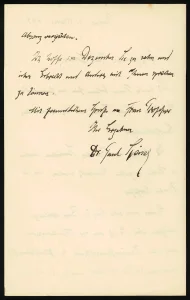 Abzug vergüten.
Ich hoffe im Dezember Sie zu sehen und
über Schnell und Andres mit Ihnen sprechen
zu können.
Mit freundlichem Grüße an Frau
Ihr Ergebener
Dr. Paul